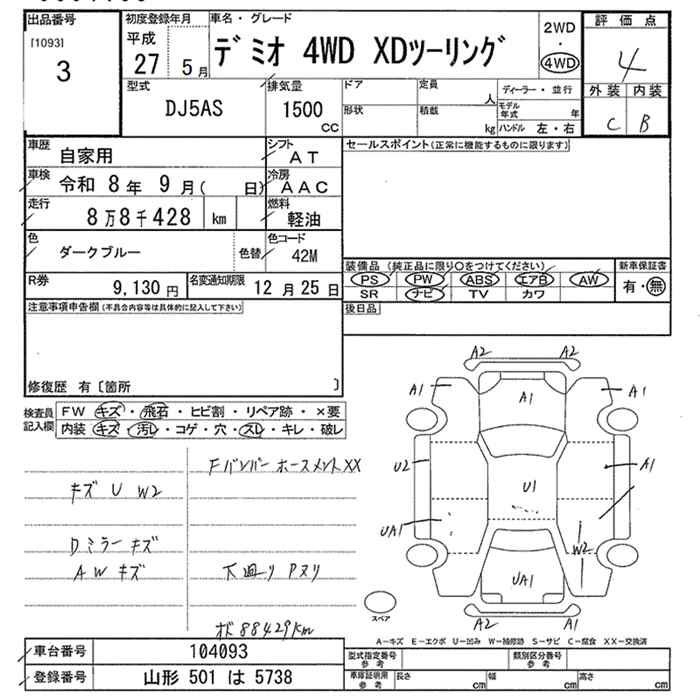 出品番号
[1093]
3
初度登録年月
平成
27 5月
車名・グレード
デミオ 4WD XDツーリング
2WD
・
4WD
評価点
4
外装 内装
C B
型式
DJ5AS
排気量
1500
cc
ドア
形状
定員
人
積載
kg
ディーラー・並行
モデル年式 年
ハンドル 左・右
車歴
自家用
シフト
AT
車検
令和 8年 9月( 日)
冷房
AAC
走行
8万8千428 km
燃料
軽油
色
ダークブルー
色替
色コード
42M
R券
9,130円
名変通知期限
12月25日
セールスポイント(正常に機能するものに限ります)
装備品(純正品に限り○をつけてください)
PS PW ABS エアB AW
SR ナビ TV カワ
新車保証書
有・無
後日品
注意事項申告欄(不具合内容等は具体的に記入して下さい)
修復歴 有〔箇所 〕
検査員記入欄
FW キズ・飛石・ヒビ割・リペア跡・×要
内装 キズ・汚レ・コゲ・穴・スレ・キレ・破レ
Fバンパー ホースメントXX
キズ U W2
Dミラー キズ
AW キズ
下廻り Pヌリ
ボ 88429km
A2 A2
A1 A1 A1
U2 U1 A1
UA1 W2
UA1
A2 A2
スペア
A-キズ E-エクボ U-凹み W-補修跡 S-サビ C-腐食 XX-交換済
車台番号
104093
登録番号
山形 501 は 5738
型式指定番号
参考
類別区分番号
参考
車庫証明用
参考
長さ cm
幅 cm
高さ cm